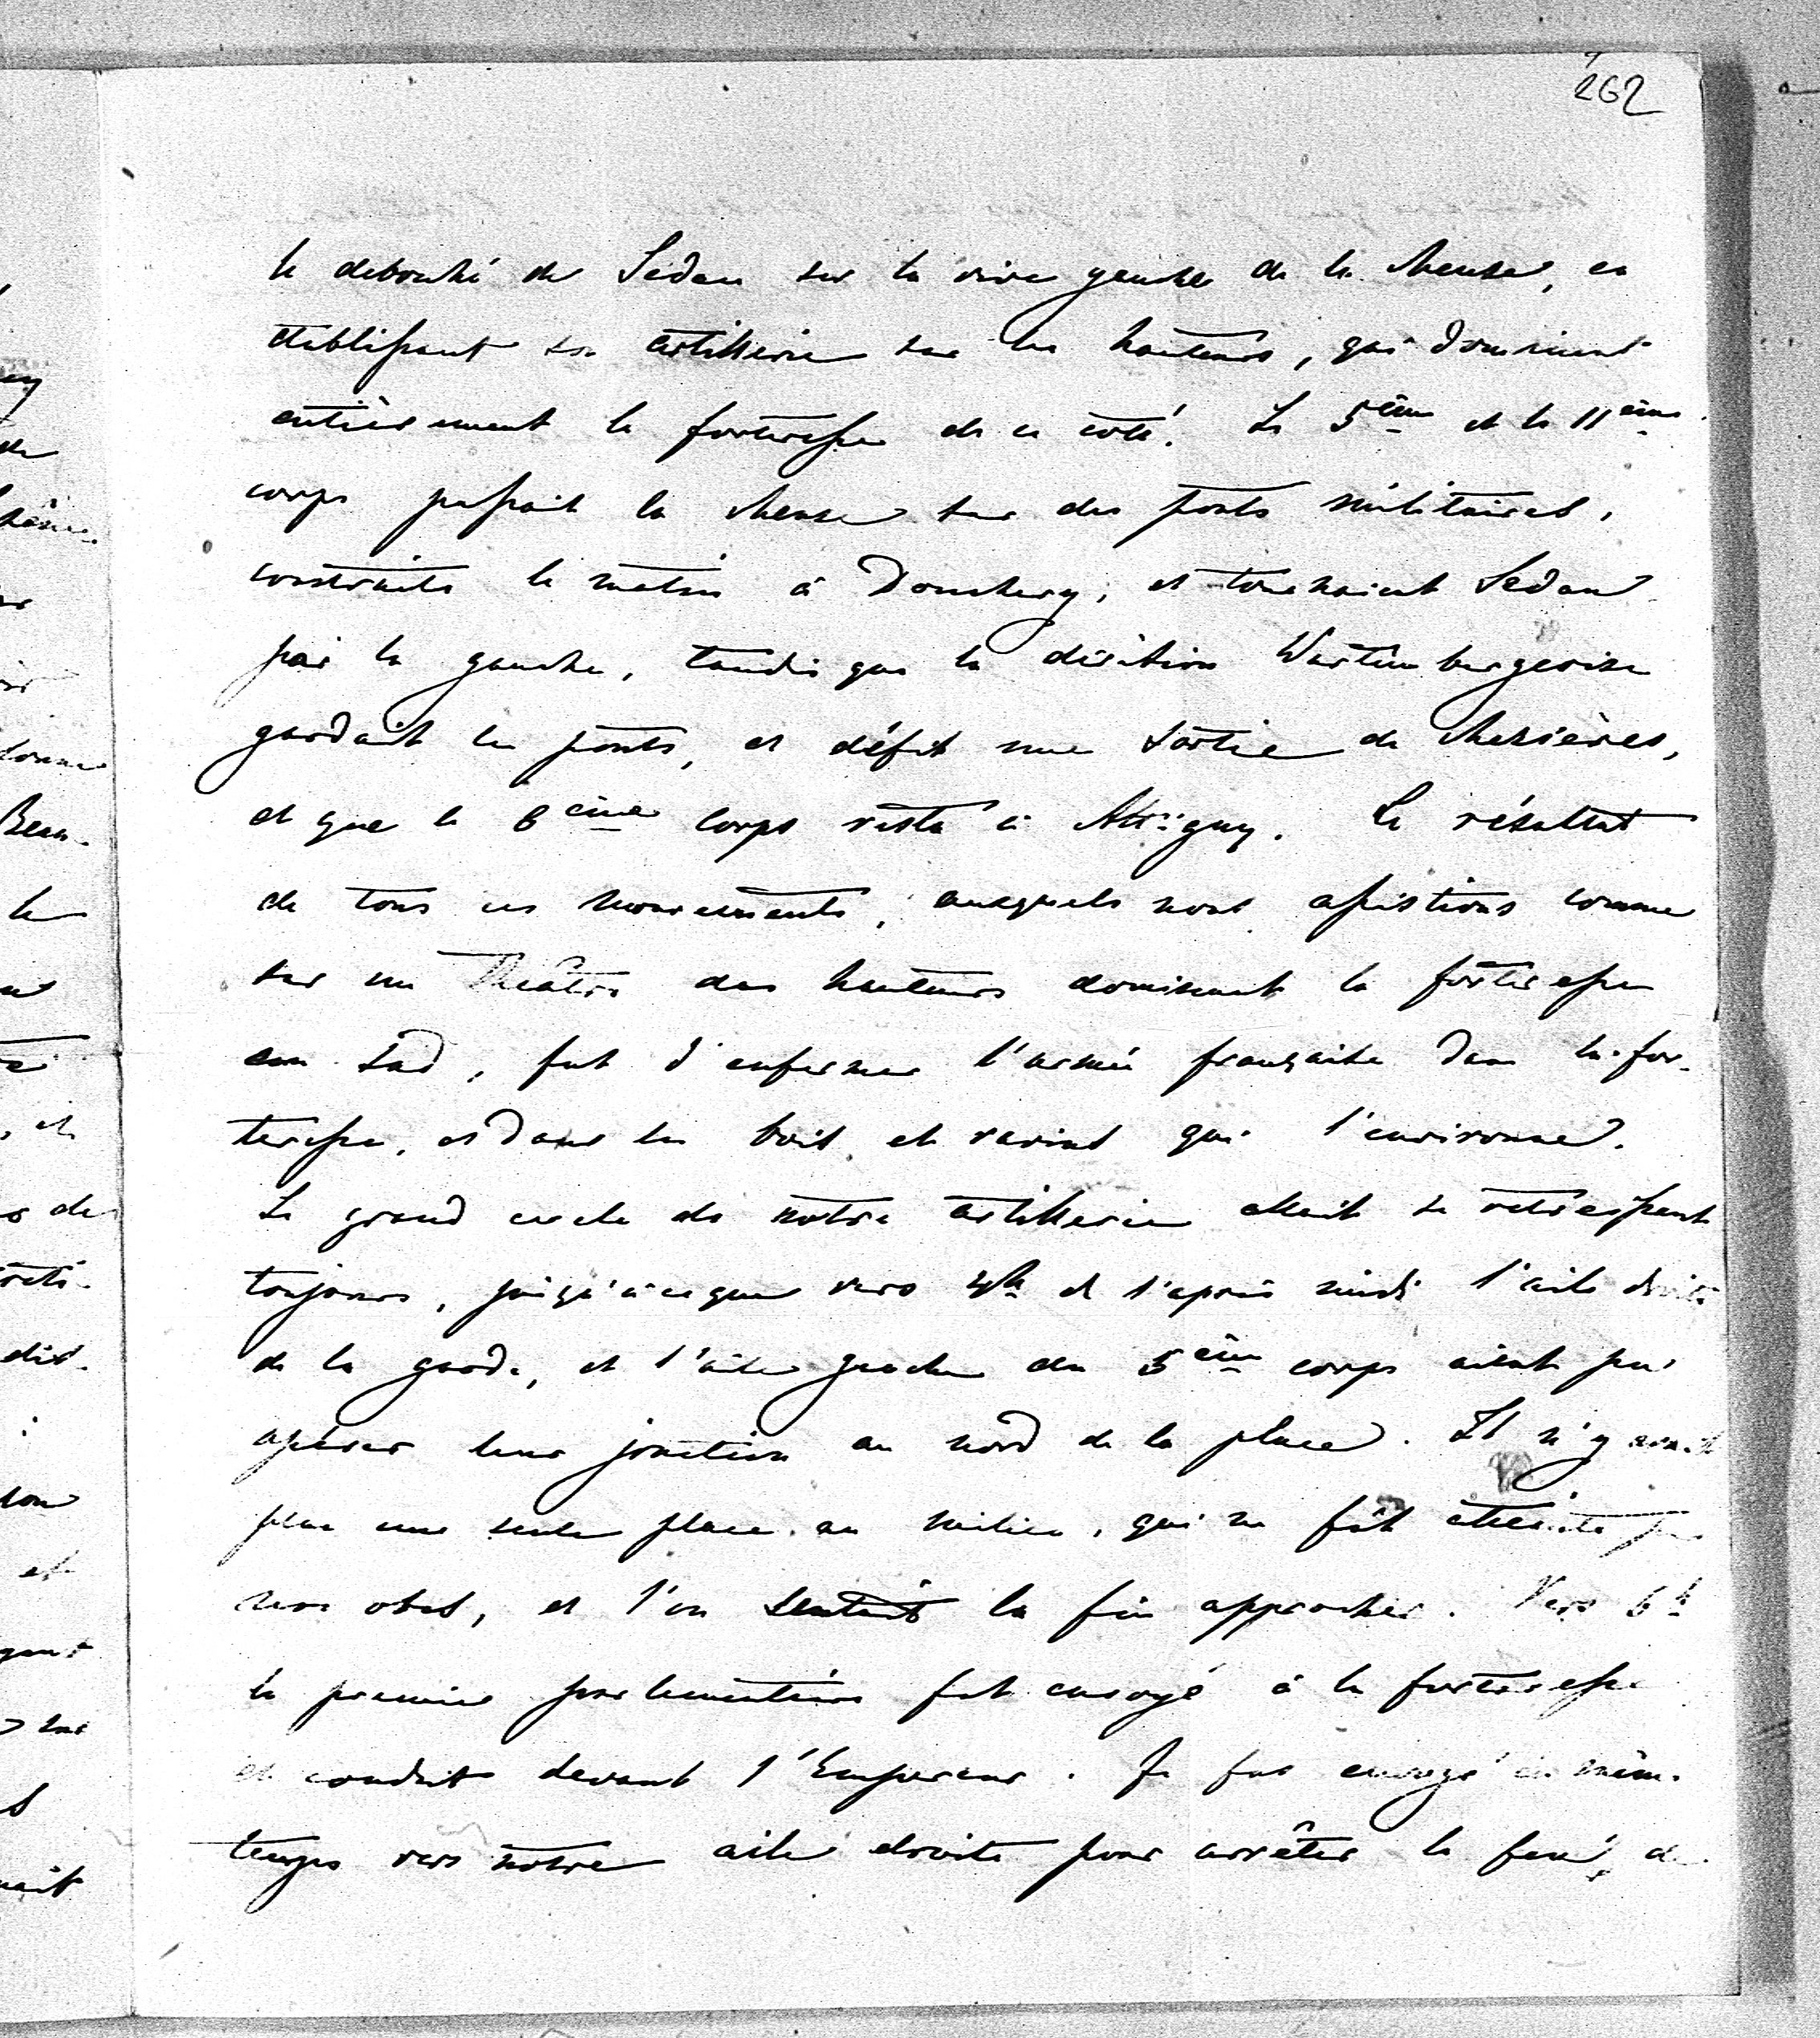 262
le debouché de Sédan sur la rive gauche de la Meuse, en
etablissant son artillerie sur les hauteurs, qui dominent
entièrement la forteresse de ce coté. Le 5ème et le 11ème
corps passait la Meuse sur des ponts militaires,
construits le matin à Donchery, et tournaient Sedan
par la gauche, tandis que la division Wurtembergeoise
gardait les ponts, et défit une sortie de Mezières,
et que le 6ème corps resta à Attigny. Le résultat
de tous ces mouvements, auxquels nous assistions comme
sur un Théâtre des hauteurs dominant la forteresse
au Sud, fut d'enfermer l'armée française dans la for-
teresse, et dans les bois et ravins qui l'environne.
Le grand cercle de notre artillerie allait se retressissant
toujours, jusqu'à ce que vers 4h de l'après midi l'aile droite
de la garde, et l'aile gauche du 5ème corps aient pu
opérer leur jonction au nord de la place. Il n'y avait
plus une seule place au milieu, qui ne fût atteinte par
nos obus, et l'on sentait la fin approcher. Vers 6h
le premier parlementaire fut envoyé à la forteresse
et conduit devant l'Empereur. Je fus envoyé en même
temps vers notre aile droite pour arrêter le feu, de